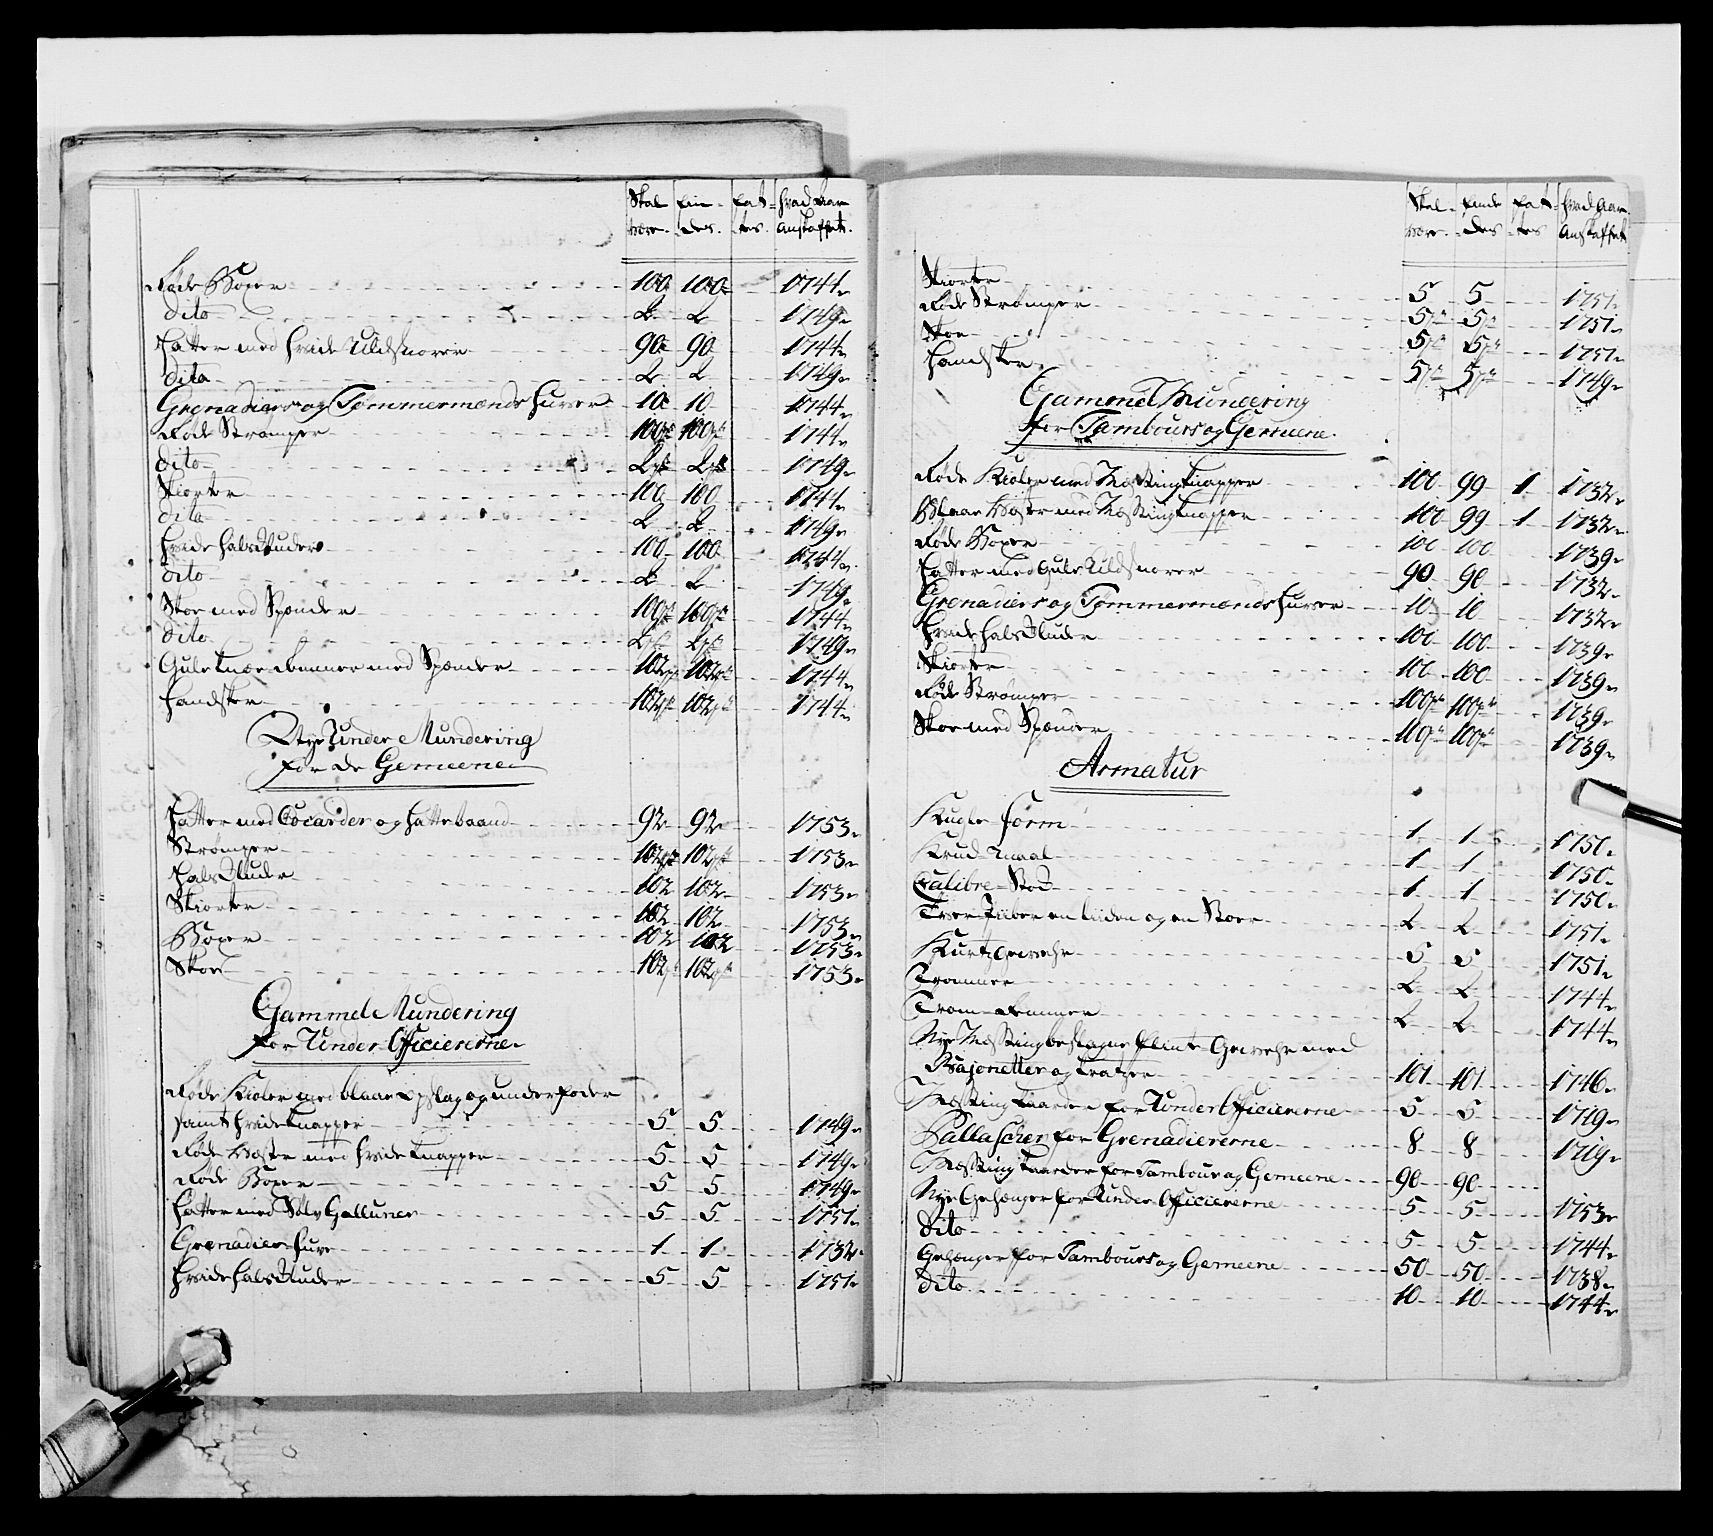 Skal Fin- Fat- Hvad Aar
være. des. tes. Anskaffet.
Røde Boxer 100 100 1744
dito 2 2 1749
Hatter med Hvide Uldsnorer 90 90 1744
dito 2 2 1749
Grenadiers og Tømmermænds Huver 10 10 1744
Røde Strømper 100 pr 100 pr 1744
dito 2 pr 2 pr 1749
Skiorter 100 100 1744
dito 2 2 1749
Hvide Halsklude 100 100 1744
dito 2 2 1749
Skoe med Spænder 100 pr 100 pr 1744
dito 2 pr 2 pr 1749
Gule Knæe Remmer med Spænder 102 pr 102 pr 1744
Handsker 102 pr 102 pr 1744
Nye Under Mundering
for de Gemeene
Hatter med Cocarder og Hattebaand 92 92 1753
Strømper 102 pr 102 pr 1753
Halsklude 102 102 1753
Skiorter 102 102 1753
Boxer 102 102 1753
Skoe 102 pr 102 pr 1753
Gammel Mundering
for Under Officiererne
Røde Kioler med blaae Opslag og underfoder
samt Hvide Knapper 5 5 1749
Røde Veste med Hvide Knapper 5 5 1749
Røde Boxer 5 5 1749
Hatter med Sølv Galluner 5 5 1751
Grenadier Huve 1 1 1732
Hvide Halsklude 5 5 1751
Skal Finde Fat- Hvad Aar
være. des tes Anskaffet
Skiorter 5 5 1751
Røde Strømper 5 pr 5 pr 1751
Skoe 5 pr 5 pr 1751
Handsker 5 pr 5 pr 1749
Gammel Mundering
for Tambours og Gemeene
Røde Kioler med Messing Knapper 100 99 1 1732
Blaae Veste med Messing Knapper 100 99 1 1732
Røde Boxer 100 100 1739
Hatter med Gule Uldsnorer 90 90 1732
Grenadiers og Tømmermænds Huver 10 10 1732
Hvide Halsklude 100 100 1739
Skiorter 100 100 1739
Røde Strømper 100 pr 100 pr 1739
Skoe med Spænder 100 pr 100 pr 1739
Armatur
Kugle Form 1 1 1750
Krud-maal 1 1 1750
Calibre-Stok 1 1 1750
en liiden og en Stoer 2 2 1751
Kurtzgewehr 5 5 1751
Trommer 2 2 1744
Trom-Remmer 2 2 1744
Nye Messingbeslagne Flinte Gewehr med
Bajonetter og Kratzer 101 101 1746
Messing Kaarder for Under Officiererne 5 5 1719
Pallascher for Grenadiererne 8 8 1719
Messing Kaarder for Tambour og Gemeene 90 90
Nye Gehænger for Under Officiererne 5 5 1753
dito 5 5 1744
Gehænger for Tambours og Gemeene 50 50 1738
dito 10 10 1744